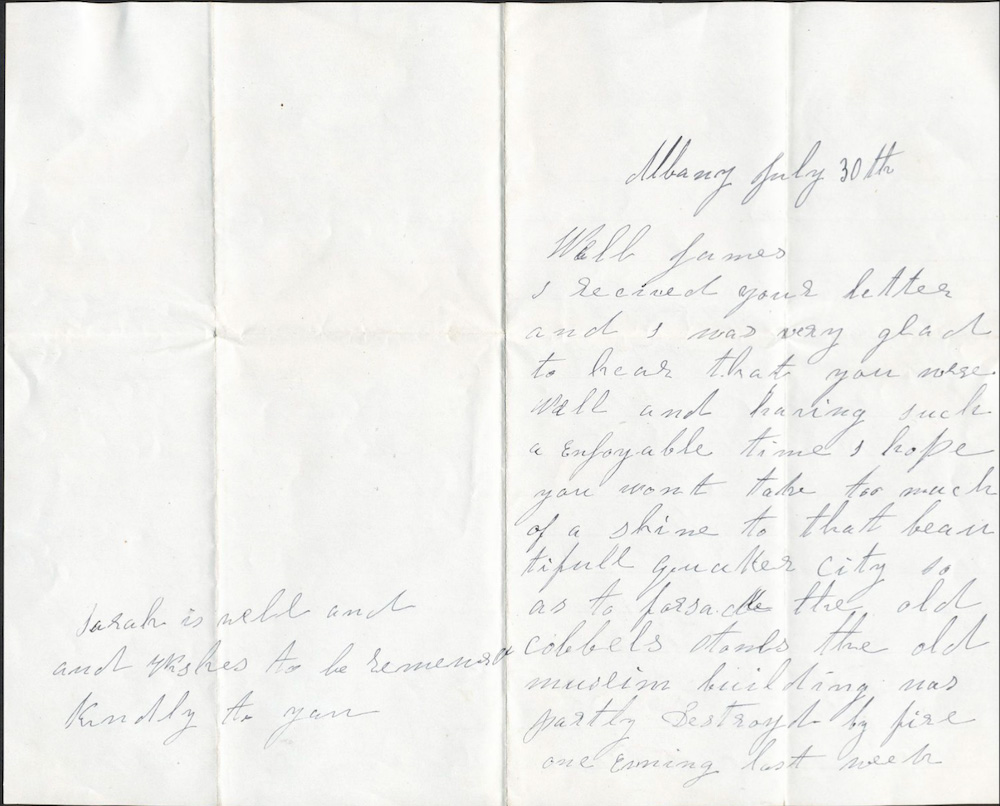 Albany July 30th
Well James
I recieved your letter
and I was very glad
to hear that you werse
well and having such
a enjoyable time I hope
you wont take too much
of a shine to that beau
tifull quaker city so
as to forsacke the old
cobbels stones the old
museim building was
partly Destroyd by fire
one evning last week
Sarah is well and
and wishes to be rememerd
Kindly to you